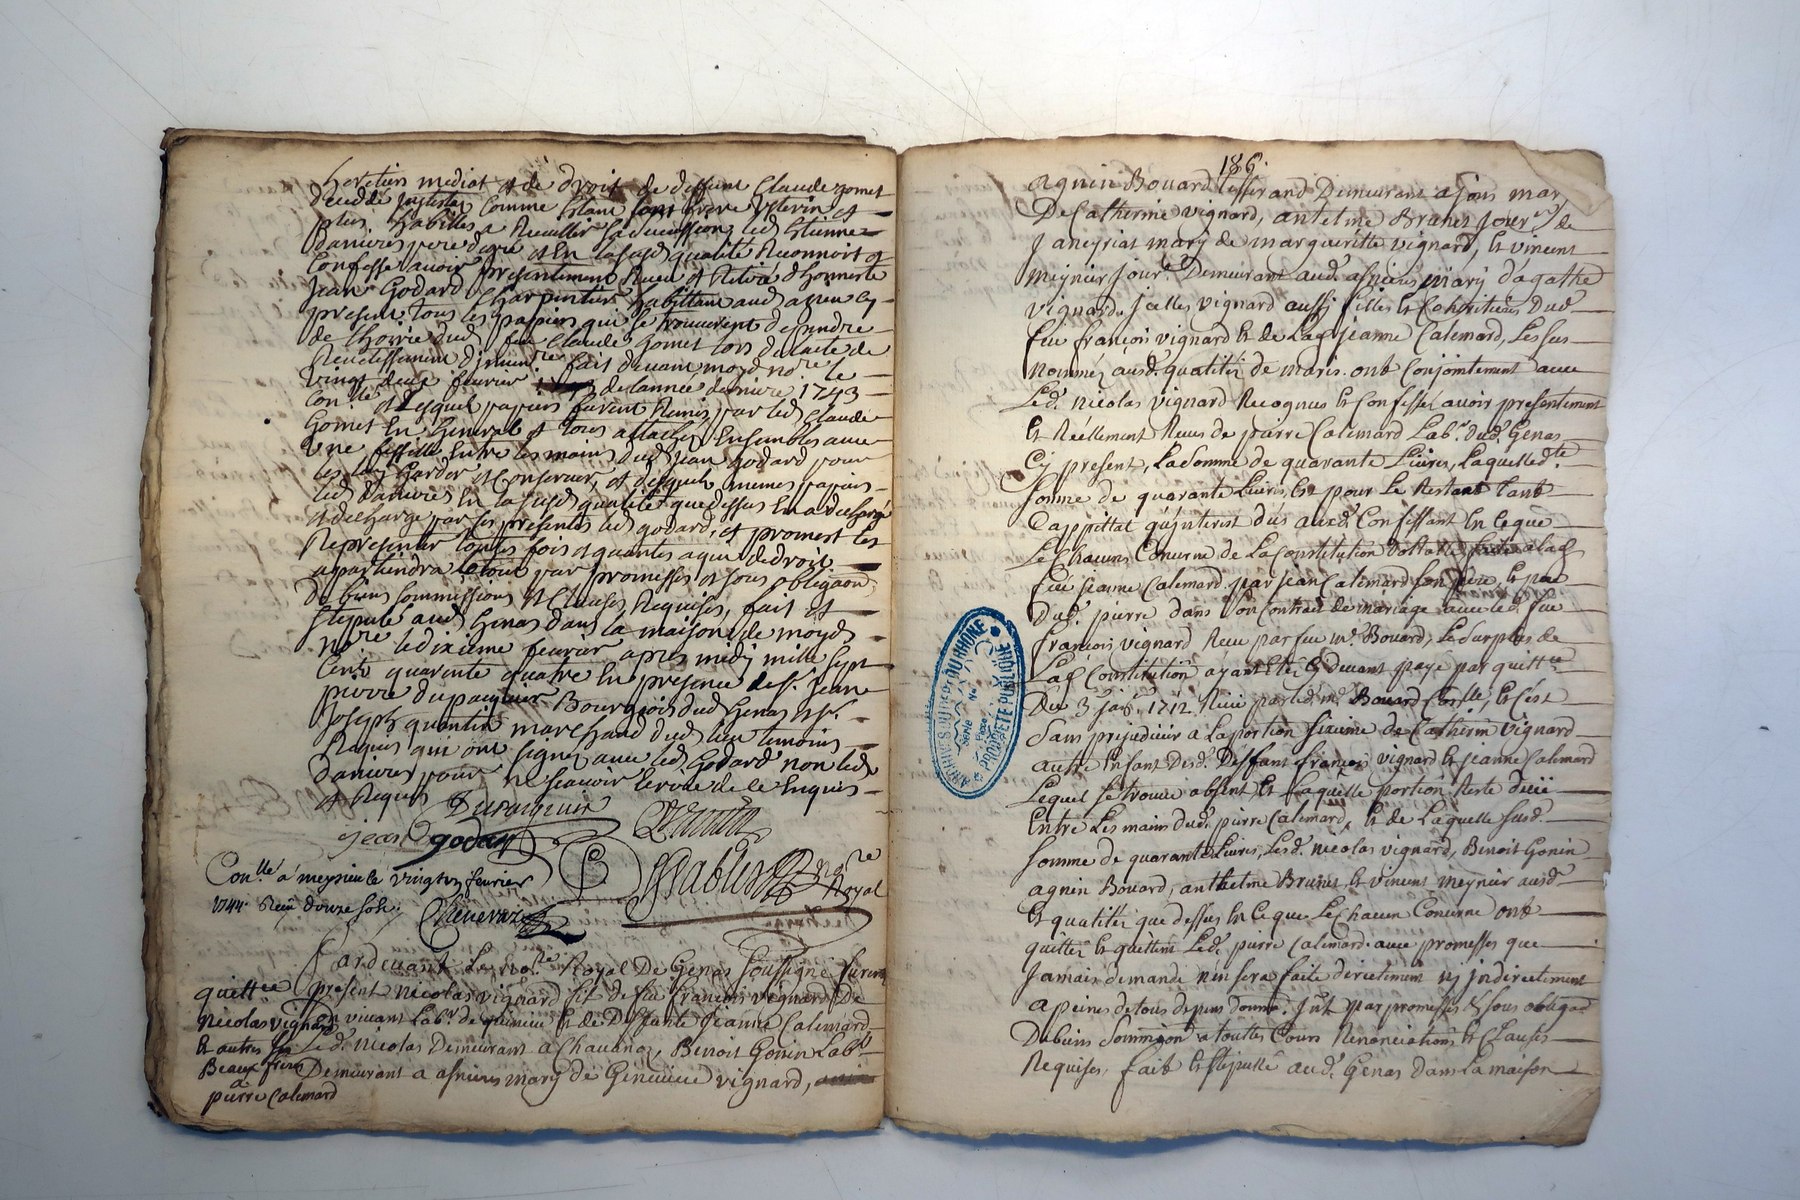 heretiers mediat et de droit de deffunt Claude gomet
decedé intestat comme estant son frere uterin et
plus habilles a Recuillir sa succession led. Etienne
danieres pere dage et En lasusd. qualité Reconnoit et
Confesse avoir presentement Receu et Retiré d'honneste
Jean Godard Charpentier habittant aud. azieu cy
present tous les papiers qui se trouverent dependre
de L'hoirie dud. feu Claude Gomet lors de lacte de
fait devant moyd. no.re le
vingt deux fevrier de lannée derniere 1743
Con.llé et Lesquels papiers furent Remis par led. Claude
Gomet En General et tous attachez Ensembles avec
une fissille Entre les mains dud. Jean Godard pour
les luy Garder et Conserver, et desquels memes papiers
led. danieres En lasusd. qualité que dessus En a dechargé
et decharge par ces presentes led. godard, et promest les
Representer toutes fois et quantes a qui de droit
appartiendra le tout par promesses et sous obligaon
de biens sommissions et clauses Requises, fait et
stipulé aud. Genas dans la maison de moyd.
no.re le dixieme fevrier apres midy mille sept
cents quarente quatre En presence de S.r Jean
pierre dupasquier Bourgeois dud. Genas et S.r
Joseph quantin marchand dud. lieu temoins
Requis qui ont signez avec led. Godard non led.
danieres pour ne sçavoir Ecrire de ce Enquis
et Requis
Dupasquier
Quantin
jean godard
no.re
Royal
Con.llé a meysieu le vingt un fevrier
1744. Receu douze sols.
Pardevant Le No.re Royal De Genas soussigné furent
present Nicolas vignard fils de feu françois vignard de
son vivant Lab.r de et de Deffunte Jeanne Calemard
Led. Nicolas Demeurant a Chavanoz, Benoit Gonin Lab.r
Demeurant a asnieres mary de Genevieve vignard,
quittce
Nicolas vignard
et autres ses
Beaux freres
a
pierre Calemard
186.
agnin Bouard tisserand Demeurant a jons mary
De Catherine vignard, antelme Brunet Jour.er de
Janeyriat mary de margueritte vignard, et vincent
meynier Jour.r Demeurant aud. asnieres mary d'agathe
vignard, Icelles vignard aussy filles et Coheritieres Dud.
feu françois vignard et de Lad. Jeanne Calemard, Les sus
nommez ausd. qualitéz de maris ont Conjointement avec
Led. nicolas vignard Recognus et Confessez avoir presentement
et Réellement Reçus de pierre Calemard Lab.r dud. Genas
Cy present, La somme de quarante Livres, Laquelled.te
somme de quarante Livres, Est pour Le Restant tant
Cappittal qu'jnterist dus aud. Confessant En ce que
Le Chacuns Concerne de La Constitution Dottalle faite a lad.
feüe Jeanne Calemard par jean Calemard son pere, Et par
Dud. pierre dans son Contrait de mariage avec led. feu
françois vignard Receu par feu m.e Bouard, Le surplus de
Lad. Constitution ayant Eté Cy devant payé par quitt.ce
Du 3 1712 Receu par led. m.e Bouard Con.llé, Et C'est
sans prejudicier a La portion sixieme de Catherin vignard
autre Enfant Desd. Deffunt françois vignard et Jeanne Calemard
Lequel se trouve absent, et Laquelle portion Reste
Entre Les mains dud. pierre Calemard, Et de Laquelle susd.
somme de quarante Livres, Lesd. nicolas vignard, Benoit Gonin
agnin Bouard, anthelme Brunet et vincent meynier ausd.
Et qualitéz que dessus En ce que Le Chacun Concerne ont
quittez et quittent Led. pierre Calemard. avec promesses que
Jamais demande n'en sera faite directement ny jndirectement
a peines de tous depens domma. Int par promesses et sous obligaon
De biens sommission a touttes Cours Renonciations et Clauses
Requises, fait Et stipullé aud. Genas Dans La maison
ARCHIVES DU DEPT DU RHÔNE
PROPRIÉTÉ PUBLIQUE